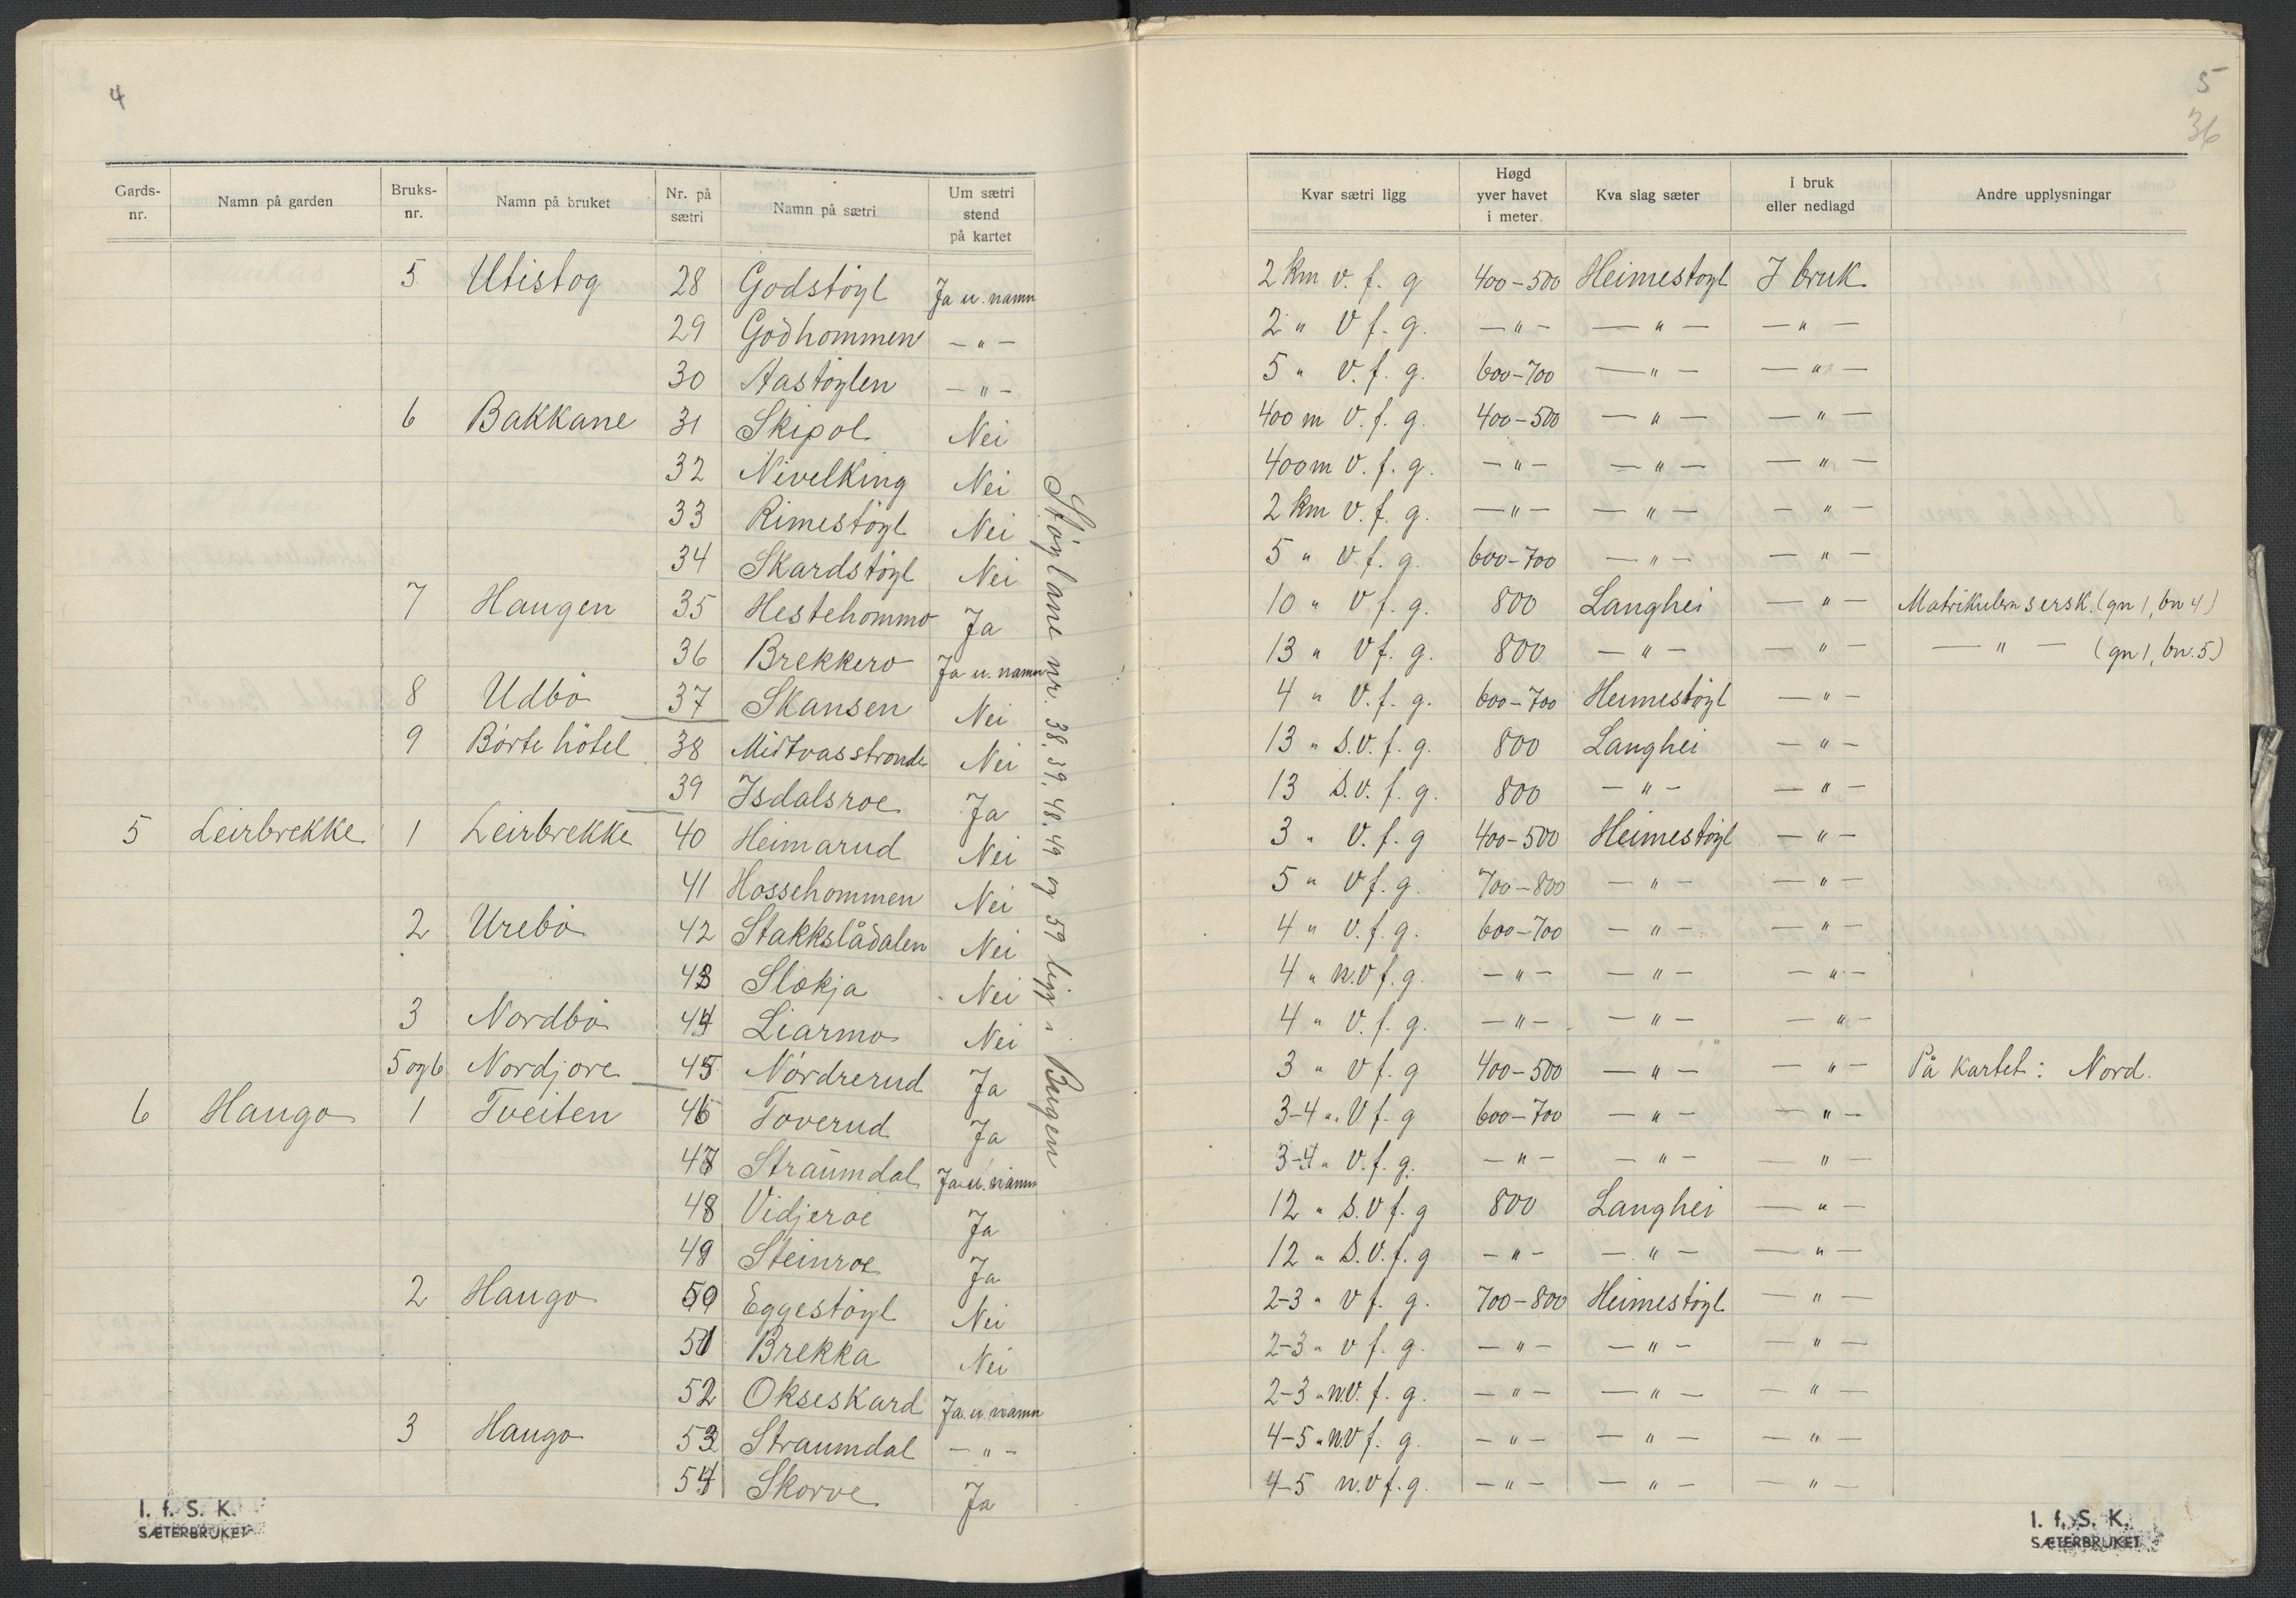 4
Gards-nr. Namn på garden Bruks-nr. Namn på bruket Nr. på sætri Namn på sætri Um sætri stend på kartet
5 Utistog 28 Godstöyl Ja u. namn
29 Godhommen — " —
30 Aastöylen — " —
6 Bakkane 31 Skipol Nei
32 Nivelking Nei
33 Rimestöyl Nei
34 Skardstöyl Nei
7 Haugen 35 Hestehommo Ja
36 Brekkero Ja u. namn
8 Udbö 37 Skansen Nei
9 Börte hötel 38 Midtvasstronde Nei
39 Isdalsroe Ja
5 Leirbrekke 1 Leirbrekke 40 Heimarud Nei
41 Hossehommen Nei
2 Urebö 42 Stakkslådalen Nei
43 Slokja Nei
3 Nordbö 44 Liarmo Nei
5 og 6 Nordjore 45 Nordrerud Ja
6 Haugo 1 Tveiten 46 Toverud Ja
47 Straumdal Ja u. namn
48 Vidjeroe Ja
49 Steinroe Ja
2 Haugo 50 Eggestöyl Nei
51 Brekka Nei
52 Okseskard Ja u. namn
3 Haugo 53 Straumdal — " —
54 Skorve Ja
Stöylane nr. 38. 39. 48. 49 og 59 ligg i Bugen
I. f. S. K.
SÆTERBRUKET
5
36
Kvar sætri ligg Høgd yver havet i meter. Kva slag sæter I bruk eller nedlagd Andre upplysningar
2 km v. f. g 400-500 Heimestoyl I bruk
2 " v f. g. — " — — " — — " —
5 " v. f. g. 600-700 — " — — " —
400 m v. f. g. 400-500 — " — — " —
400 m v. f. g. — " — — " — — " —
2 km v. f. g. — " — — " — — " —
5 " v. f. g. 600-700 — " — — " —
10 " v f. g. 800 Langhei — " — Matrikulera sersk. (gn 1, bn 4)
13 " v f. g. 800 — " — — " — — " — (gn 1, bn. 5)
4 " v. f. g. 600-700 Heimestöyl — " —
13 " s. v. f. g. 800 Langhei — " —
13 s. v. f. g. 800 — " — — " —
3 " v. f. g 400-500 Heimestöyl — " —
5 " v f. g. 700-800 — " — — " —
4 " v. f. g. 600-700 — " — — " —
4 " n. v f. g. — " — — " — — " —
4 " v. f. g. — " — — " — — " —
3 " v f. g 400-500 — " — — " — På kartet: Nord.
3-4 " v f. g 600-700 — " — — " —
3-4 " v. f. g. — " — — " — — " —
12 " s. v f. g 800 Langhei — " —
12 " s. v. f. g — " — — " — — " —
2-3 " v f. g. 700-800 Heimestöyl — " —
2-3 " v f. g. — " — — " — — " —
2-3 " n v. f. g. — " — — " — — " —
4-5 " n. v f. g. — " — — " — — " —
4-5 n. v f. g. — " — — " — — " —
I. f. S. K.
SÆTERBRUKET